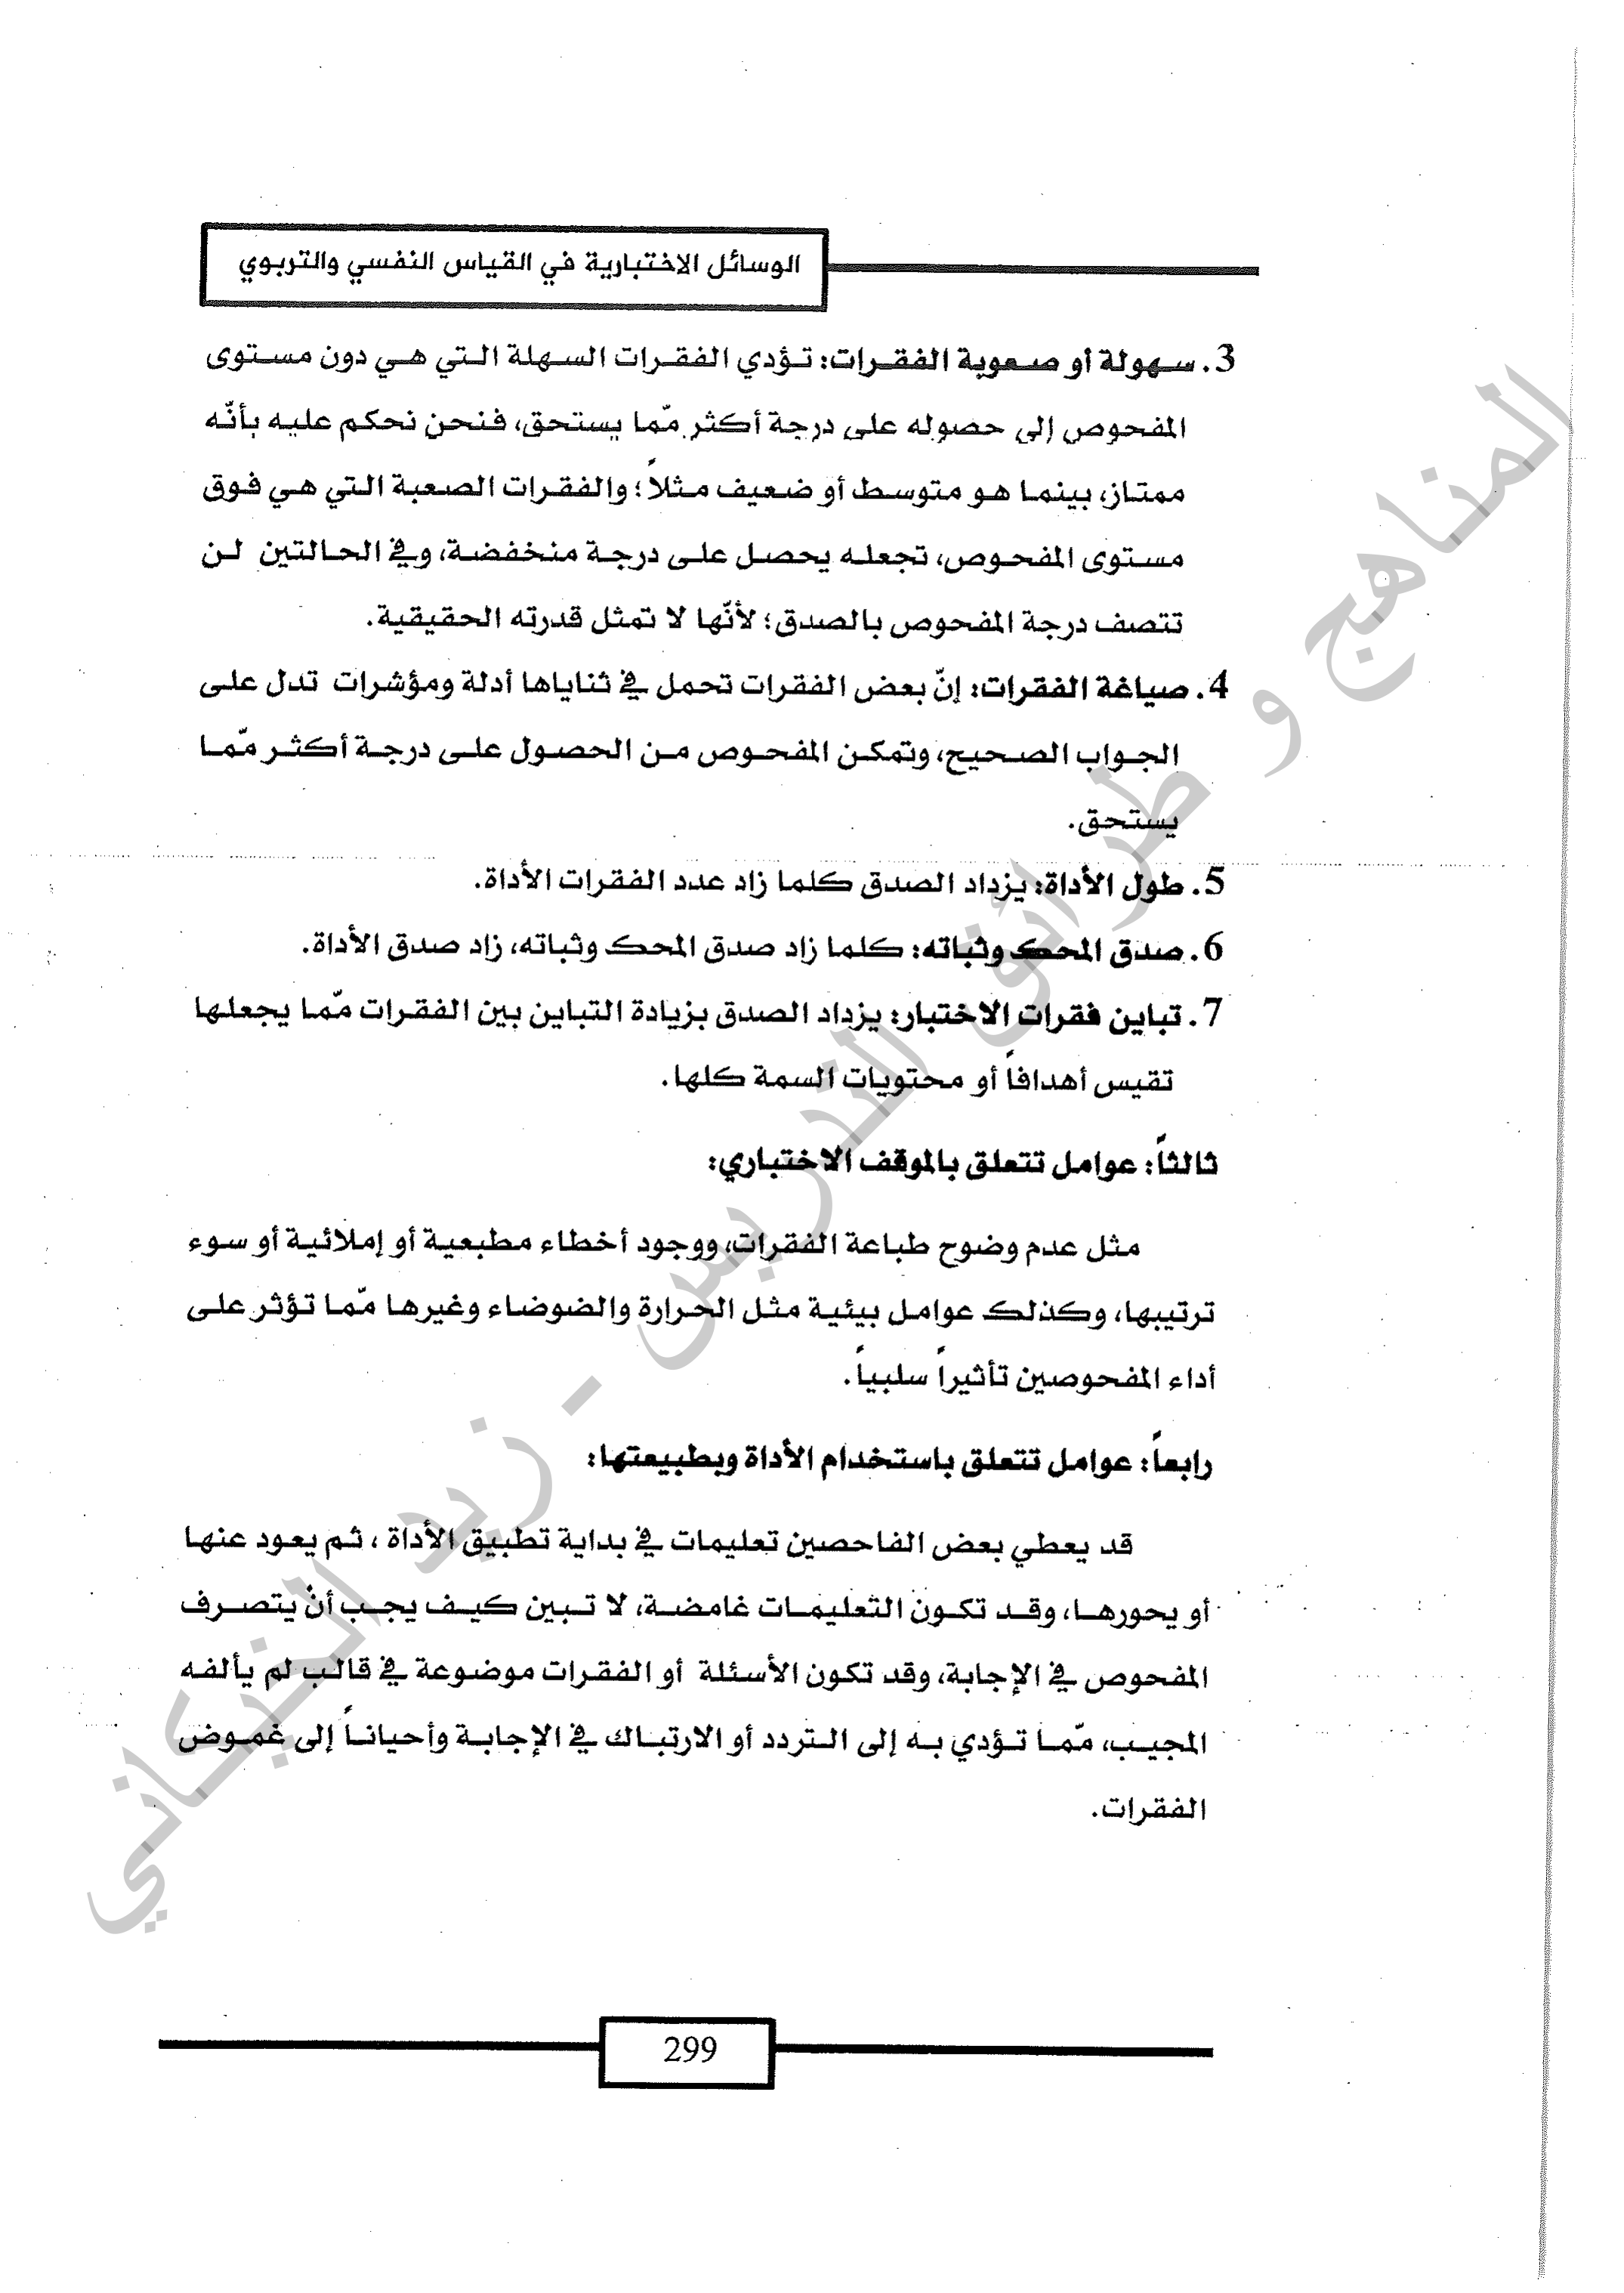 الوسائل الاختبارية في القياس النفسي والتربوي
3. سهولة أو صعوبة الفقرات: تؤدي الفقرات السهلة التي هي دون مستوى
المفحوص إلى حصوله على درجة أكثر ممّا يستحق، فنحن نحكم عليه بأنّه
ممتاز، بينما هو متوسط أو ضعيف مثلاً؛ والفقرات الصعبة التي هي فوق
مستوى المفحوص، تجعله يحصل على درجة منخفضة، وفي الحالتين لن
تتصف درجة المفحوص بالصدق؛ لأنّها لا تمثل قدرته الحقيقية.
4. صياغة الفقرات: إنّ بعض الفقرات تحمل في ثناياها أدلة ومؤشرات تدل على
الجواب الصحيح، وتمكن المفحوص من الحصول على درجة أكثر ممّا
يستحق.
5. طول الأداة: يزداد الصدق كلما زاد عدد الفقرات الأداة.
6. صدق المحك وثباته: كلما زاد صدق المحك وثباته، زاد صدق الأداة.
7. تباين فقرات الاختبار: يزداد الصدق بزيادة التباين بين الفقرات ممّا يجعلها
تقيس أهدافاً أو محتويات السمة كلها.
ثالثاً: عوامل تتعلق بالموقف الاختباري:
مثل عدم وضوح طباعة الفقرات، ووجود أخطاء مطبعية أو إملائية أو سوء
ترتيبها، وكذلك عوامل بيئية مثل الحرارة والضوضاء وغيرها ممّا تؤثر على
أداء المفحوصين تأثيراً سلبياً.
رابعاً: عوامل تتعلق باستخدام الأداة وبطبيعتها:
قد يعطي بعض الفاحصين تعليمات في بداية تطبيق الأداة ، ثم يعود عنها
أو يحورها، وقد تكون التعليمات غامضة، لا تبين كيف يجب أنْ يتصرف
المفحوص في الإجابة، وقد تكون الأسئلة أو الفقرات موضوعة في قالب لم يألفه
المجيب، ممّا تؤدي به إلى التردد أو الارتباك في الإجابة وأحياناً إلى غموض
الفقرات.
299
المناهج و طرائق التدريس - زيد الخيكاني